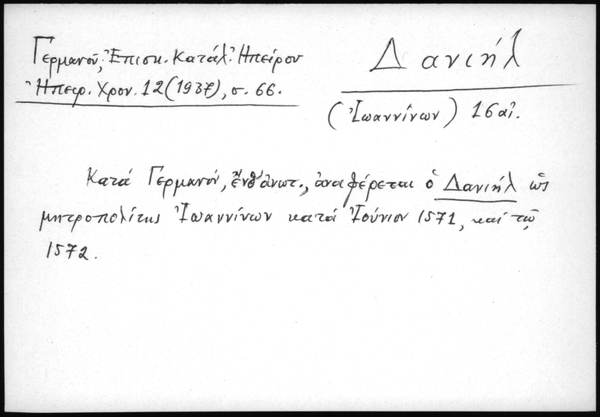 Γερμανοῦ, Ἐπισκ. Κατάλ. Ἠπείρου
Ἠπειρ. Χρον. 12 (1937), σ. 66.
Δανιήλ
(Ἰωαννίνων) 16 αἰ.
Κατά Γερμανόν, ἔνθ' ἀνωτ., ἀναφέρεται ὁ Δανιήλ ὡς
μητροπολίτης Ἰωαννίνων κατά Ἰούνιον 1571, καί τῷ
1572.